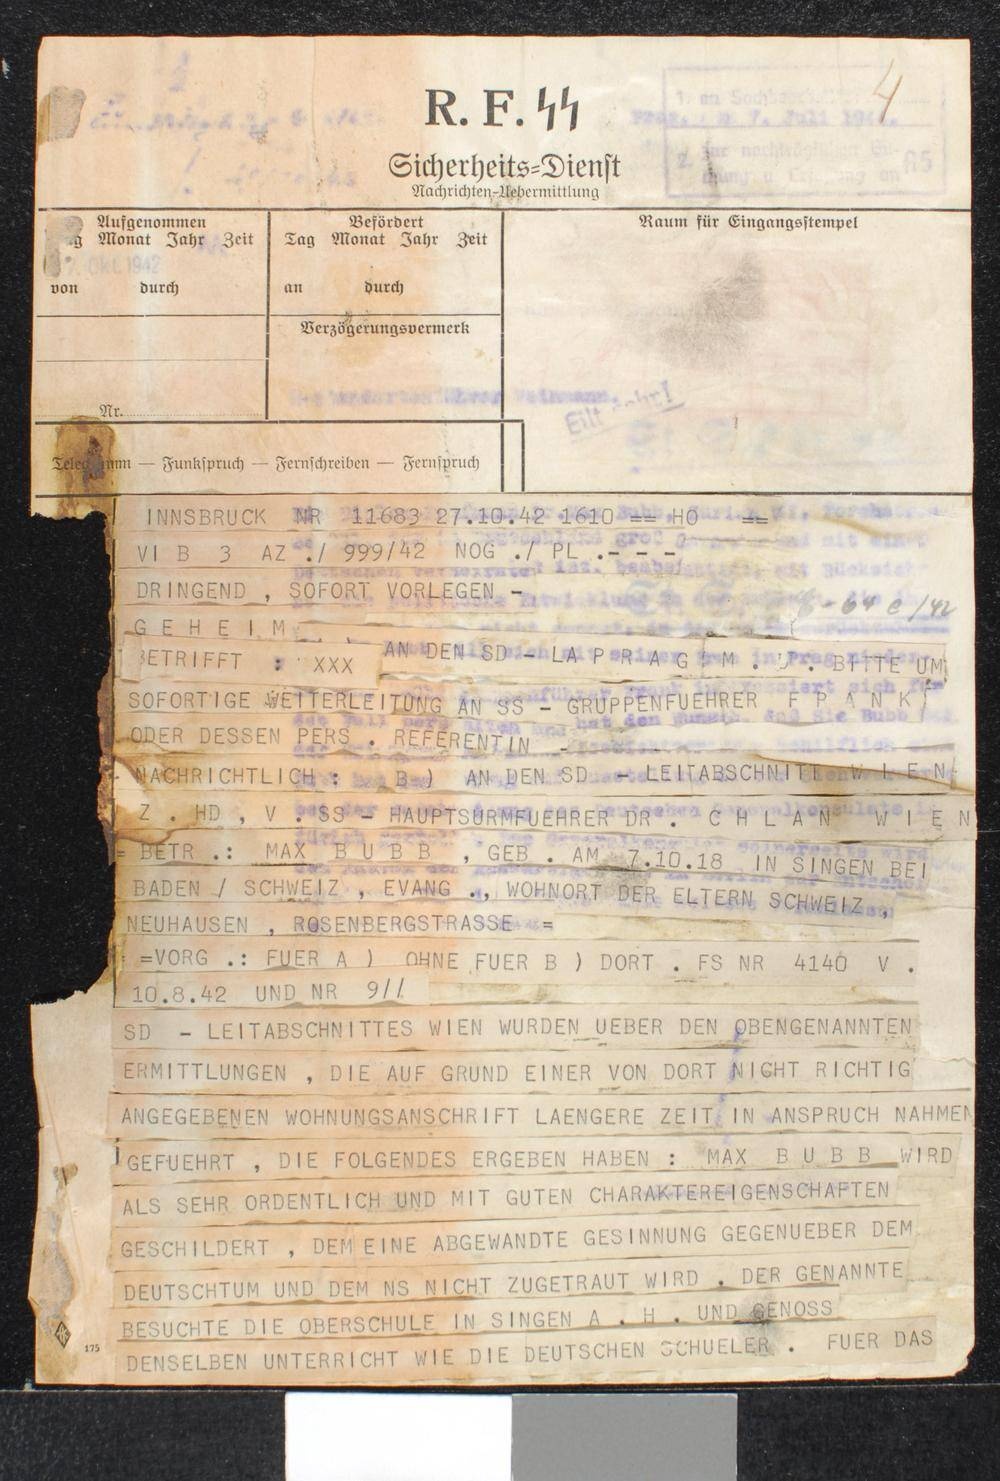 4
R. F. SS
Sicherheits=Dienst
Nachrichten=Uebermittlung
Prag, 7. Juli
Aufgenommen
Monat Jahr Zeit
7. Okt. 1942
von durch
Nr.
Befördert
Tag Monat Jahr Zeit
an durch
Verzögerungsvermerk
Raum für Eingangsstempel
Eilt sehr!
— Funkspruch — Fernschreiben — Fernspruch
INNSBRUCK NR 11683 27.10.42 1610 == HO ==
VI B 3 AZ ./ 999/42 NOG ./ PL .- - -
DRINGEND , SOFORT VORLEGEN -
G E H E I M
BETRIFFT : XXX AN DEN SD - LA P R A G M . D . BITTE UM
SOFORTIGE WEITERLEITUNG AN SS - GRUPPENFUEHRER F R A N K
ODER DESSEN PERS . REFERENTIN -
NACHRICHTLICH : B ) AN DEN SD - LEITABSCHNITT W I E N
Z . HD , V . SS - HAUPTSURMFUEHRER DR . C H L A N W I E N
= BETR .: MAX B U B B , GEB . AM 7.10.18 IN SINGEN BEI
BADEN / SCHWEIZ , EVANG ., WOHNORT DER ELTERN SCHWEIZ ,
NEUHAUSEN , ROSENBERGSTRASSE =
=VORG .: FUER A ) OHNE FUER B ) DORT . FS NR 4140 V .
10.8.42 UND NR 9//
SD - LEITABSCHNITTES WIEN WURDEN UEBER DEN OBENGENANNTEN
ERMITTLUNGEN , DIE AUF GRUND EINER VON DORT NICHT RICHTIG
ANGEGEBENEN WOHNUNGSANSCHRIFT LAENGERE ZEIT IN ANSPRUCH NAHMEN
GEFUEHRT , DIE FOLGENDES ERGEBEN HABEN : MAX B U B B WIRD
ALS SEHR ORDENTLICH UND MIT GUTEN CHARAKTEREIGENSCHAFTEN
GESCHILDERT , DEM EINE ABGEWANDTE GESINNUNG GEGENUEBER DEM
DEUTSCHTUM UND DEM NS NICHT ZUGETRAUT WIRD . DER GENANNTE
BESUCHTE DIE OBERSCHULE IN SINGEN A . H . UND GENOSS
DENSELBEN UNTERRICHT WIE DIE DEUTSCHEN SCHUELER . FUER DAS
175